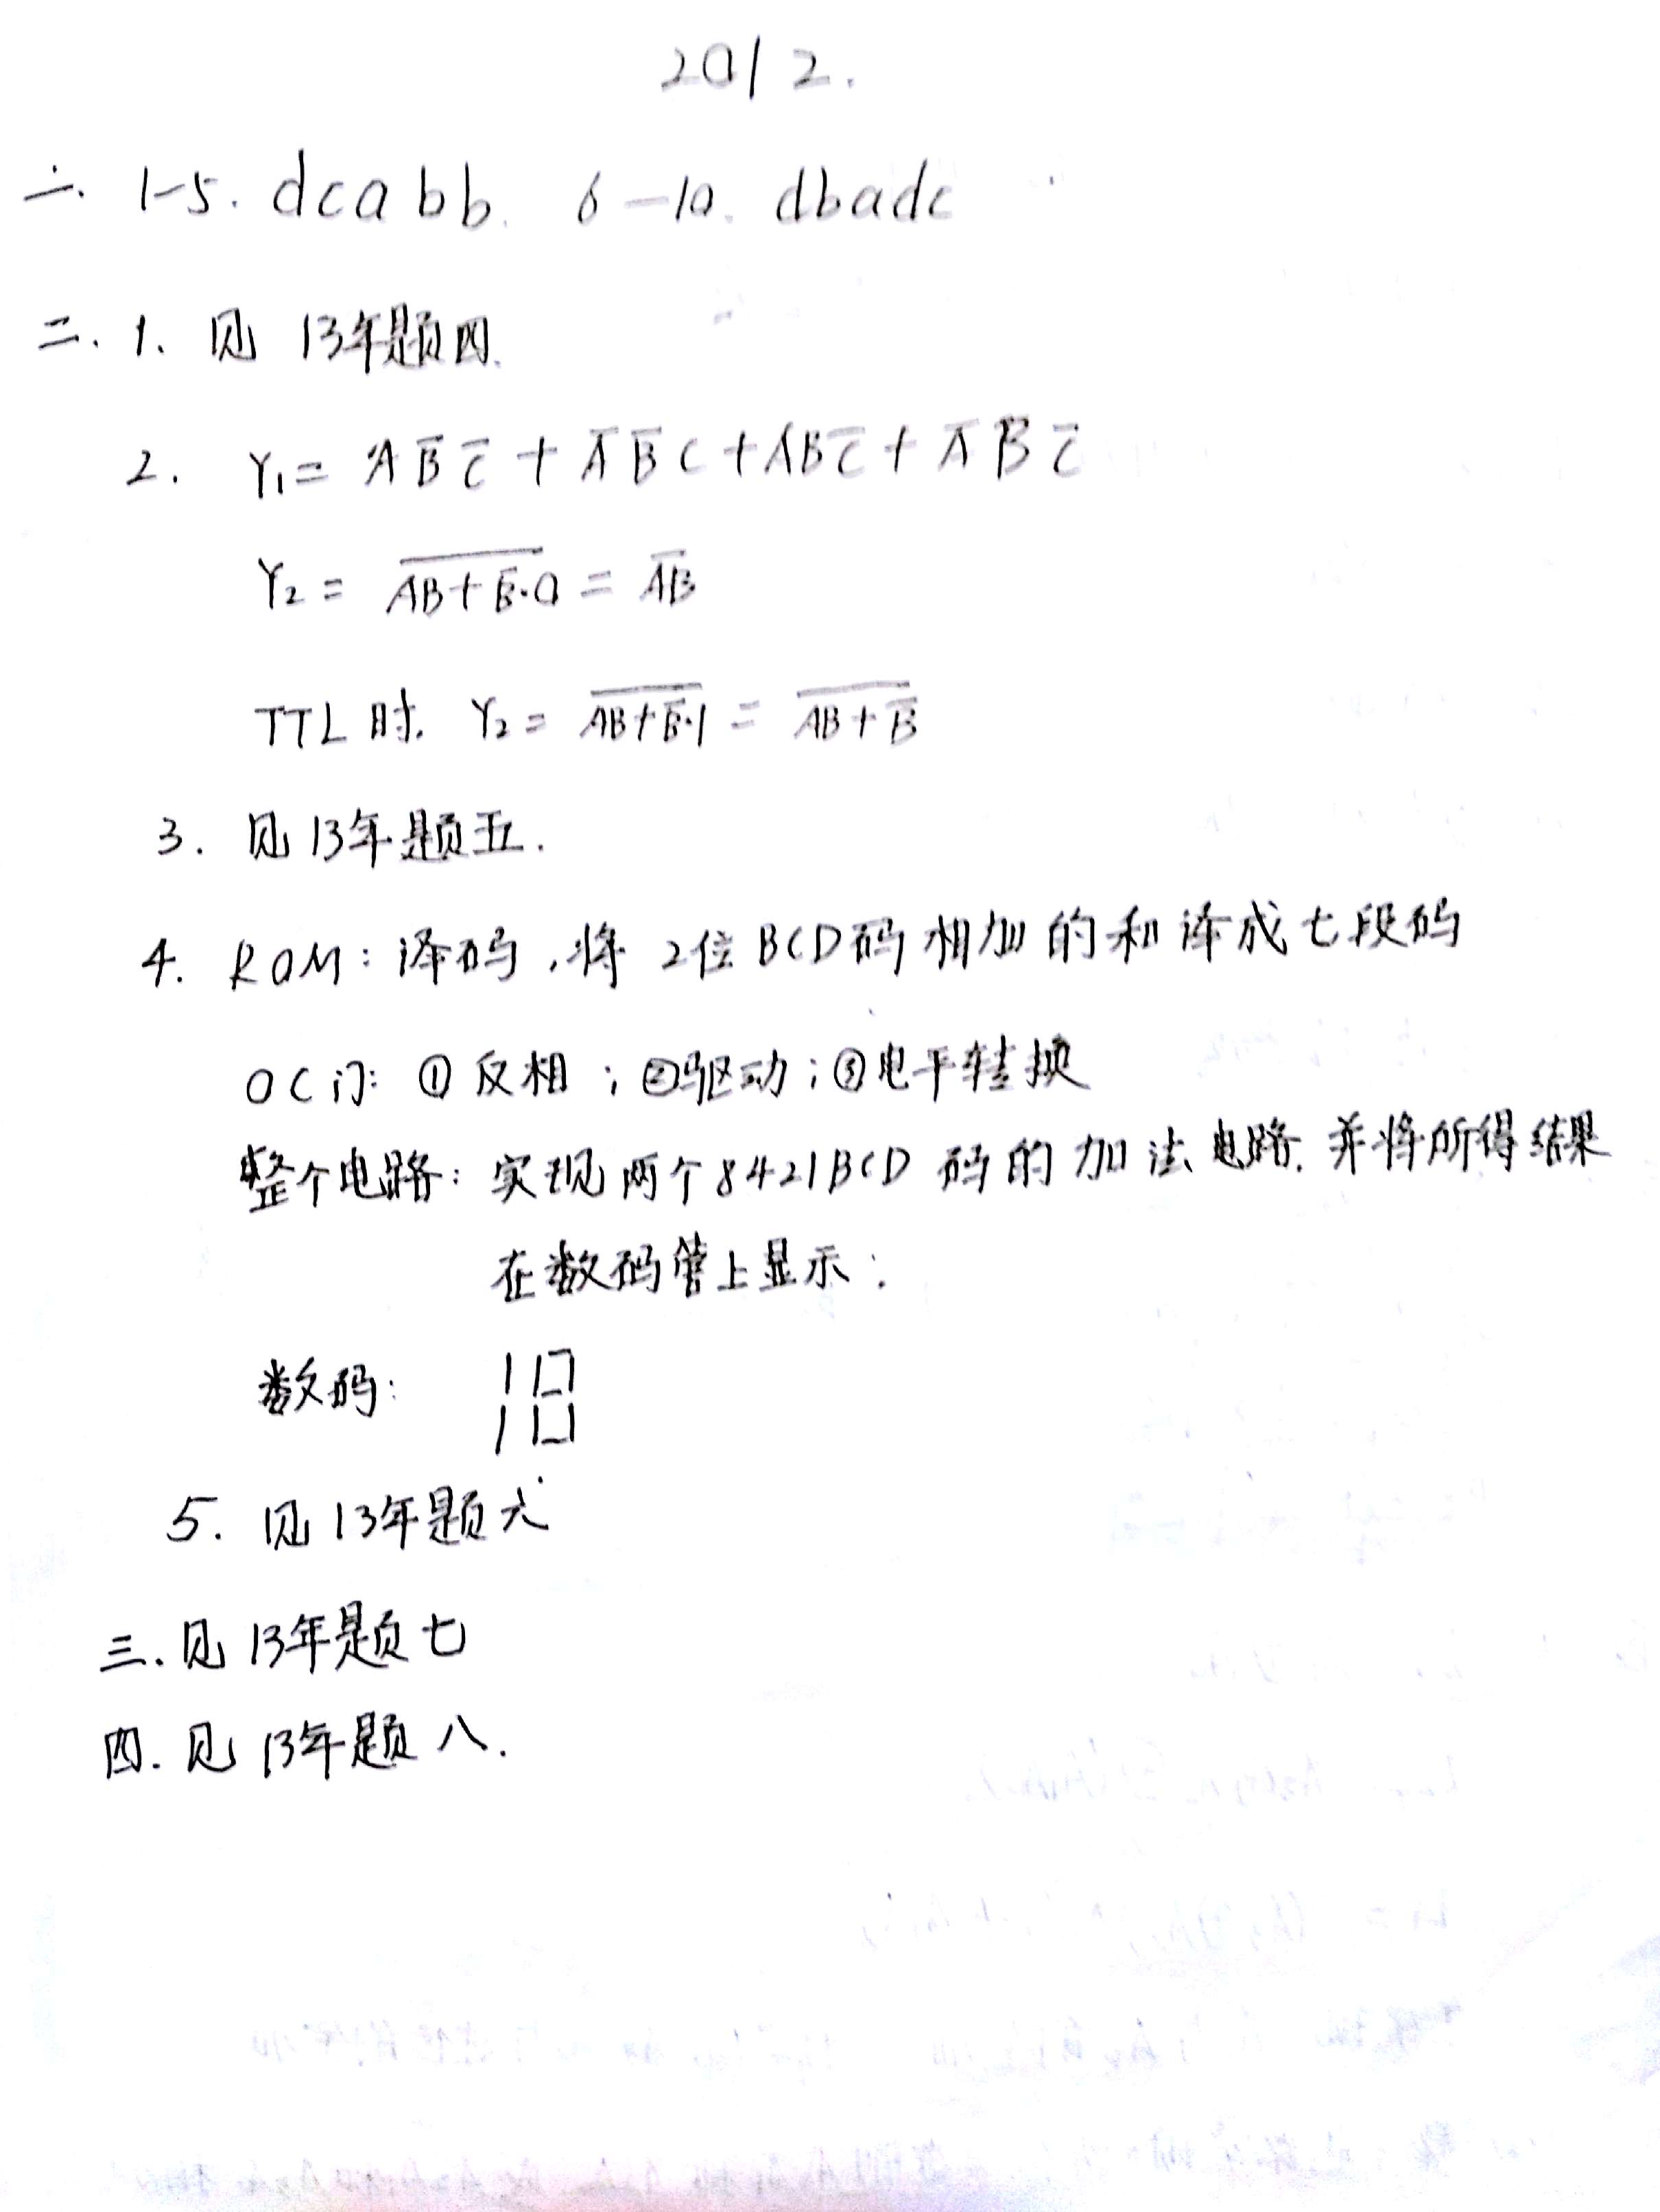 2012.
一. 1-5. dcabb. 6-10. dbadc
二. 1、见 13年题四.
2. Y₁ = A B̅ C̅ + A̅ B̅ C + A B C̅ + A̅ B C̅
Y₂ = \overline{AB + B̅·0} = \overline{AB}
TTL时. Y₂ = \overline{AB + B̅·1} = \overline{AB + B̅}
3. 见13年题五.
4. ROM: 译码,将 2位BCD码相加的和译成七段码
OC门: ①反相;②驱动;③电平转换
整个电路: 实现两个8421BCD 码的加法电路. 并将所得结果
在数码管上显示:
数码: 18
5. 见13年题六
三. 见 13年题七
四. 见 13年题八.